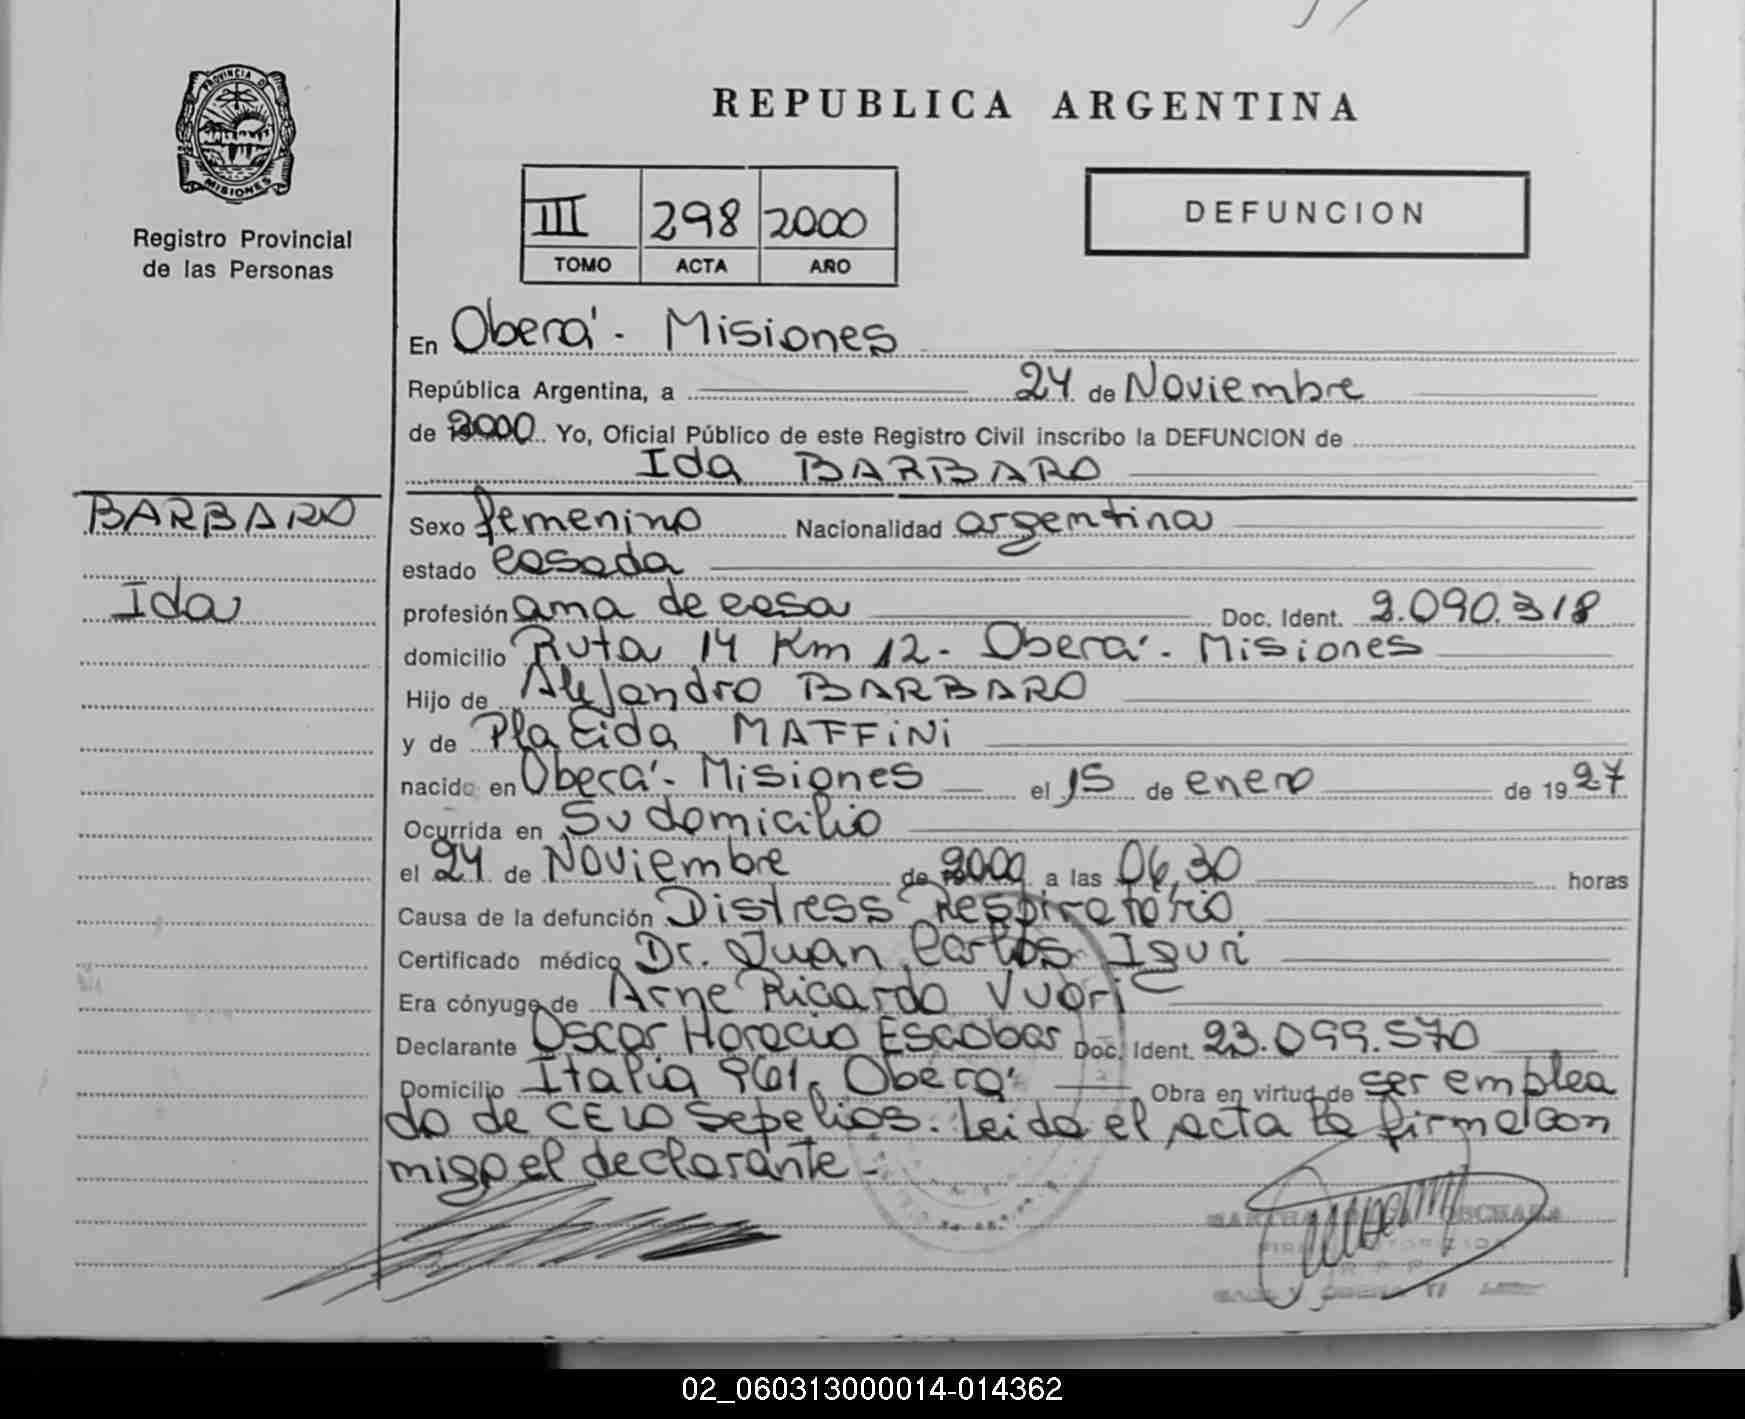 PROVINCIA D
MISIONES
Registro Provincial
de las Personas
REPUBLICA ARGENTINA
III 298 2000
TOMO ACTA AÑO
DEFUNCION
En Oberá - Misiones
República Argentina, a 24 de Noviembre
de 2000 Yo, Oficial Público de este Registro Civil inscribo la DEFUNCION de
Ida BARBARO
BARBARO
Ida
Sexo femenino Nacionalidad argentina
estado casada
profesión ama de casa Doc. Ident. 2.090.318
domicilio Ruta 14 Km 12 - Oberá - Misiones
Hijo de Alejandro BARBARO
y de Placida MAFFiNi
nacido en Oberá - Misiones el 15 de enero de 1927
Ocurrida en Su domicilio
el 24 de Noviembre de 2000 a las 06,30 horas
Causa de la defunción Distress Respiratorio
Certificado médico Dr. Juan Carlos Iguri
Era cónyuge de Arne Ricardo Vuori
Declarante Oscar Horacio Escobar Doc. Ident. 23.099.570
Domicilio Italia 961, Oberá Obra en virtud de ser emplea
do de CELO Sepelios. Leida el acta la firma con
migo el declarante -
MARTHA
02_060313000014-014362